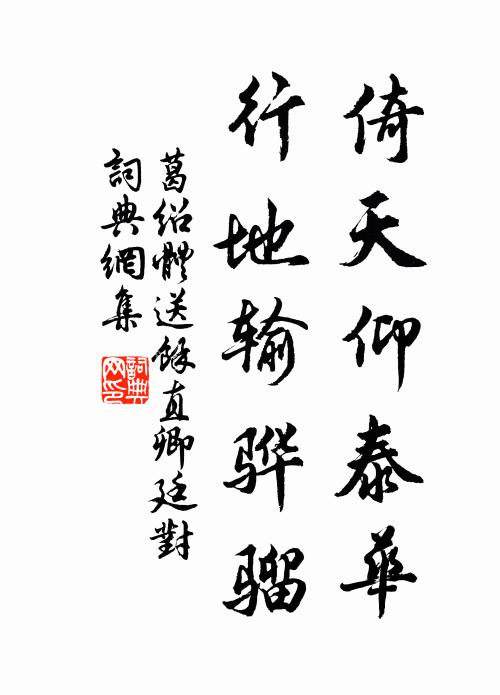 倚天仰泰華
行地输骅骝
葛绍體送餘直卿廷對
詞典網集
詞典網印